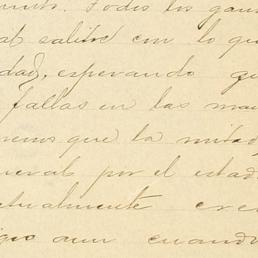 Todos los gana
al salitre con lo qu
dad, esperando qu
fallas en las ma
emos que la mitad
neral por el estad
tualmente cre
aun cuando